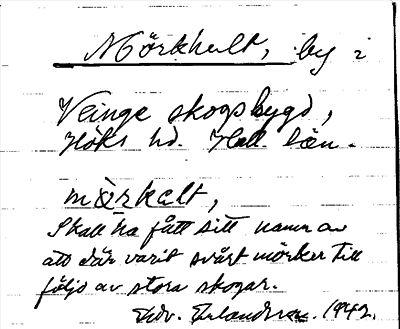 Mörkhult, by i
Veinge skogsbygd,
Höks hd. Hall. län.
mö̀rkalt,
Skall ha fått sitt namn av
att där varit svårt mörker till
följd av stora skogar.
Edv. Erlandsson. 1942.